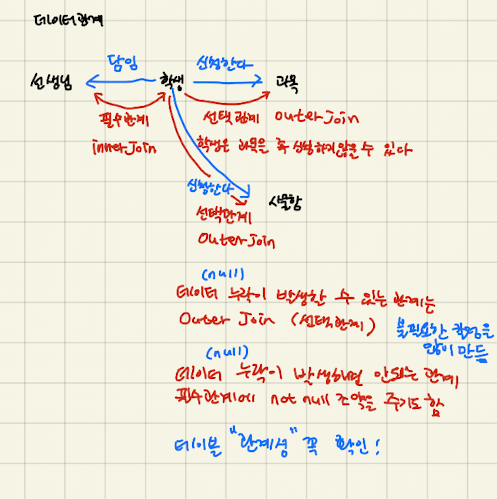 데이터관계
담임
신청한다
선생님
학생
과목
필수관계
inner Join
선택관계 outer join
학생은 과목을 꼭 신청하지않을 수 있다
신청한다
사물함
선택관계
Outer Join
(null)
데이터 누락이 발생할 수 있는 관계는
Outer Join (선택관계)
불필요한 확장을
많이 만듦
(null)
데이터 누락이 발생하면 안되는 관계
필수관계에 not null 조약을 주기도 함
테이블 "관계성" 꼭 확인!